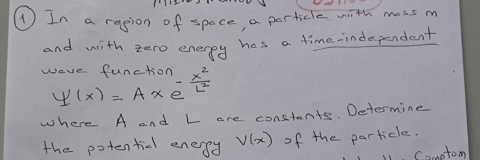 ① In a region of space, a particle with mass m
and with zero energy has a time-independent
wave function
Ψ(x) = A x e^{-x²/L²}
where A and L are constants. Determine
the potential energy V(x) of the particle.
Compton